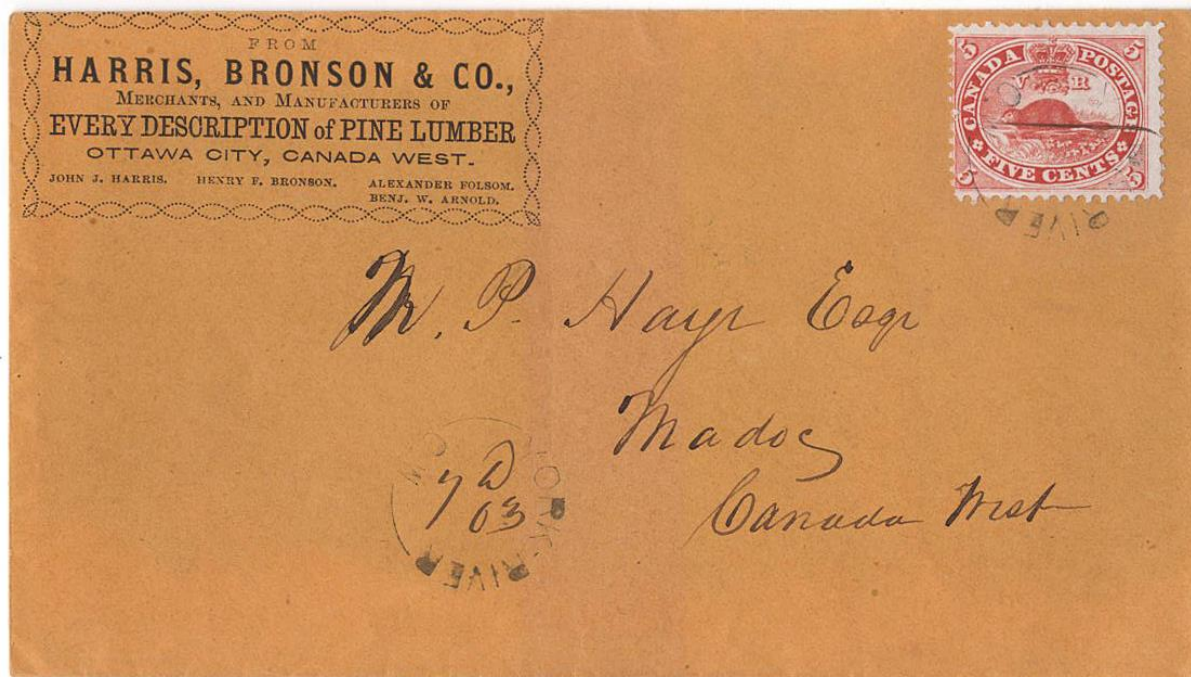 FROM
HARRIS, BRONSON & CO.,
MERCHANTS, AND MANUFACTURERS OF
EVERY DESCRIPTION of PINE LUMBER
OTTAWA CITY, CANADA WEST.
JOHN J. HARRIS. HENRY F. BRONSON. ALEXANDER FOLSOM.
BENJ. W. ARNOLD.
5 5
CANADA POSTAGE
V R
FIVE CENTS
5 5
RIVER
M. P. Esqr
Madoc
Canada West
YORK RIVER
C W
7 D
63